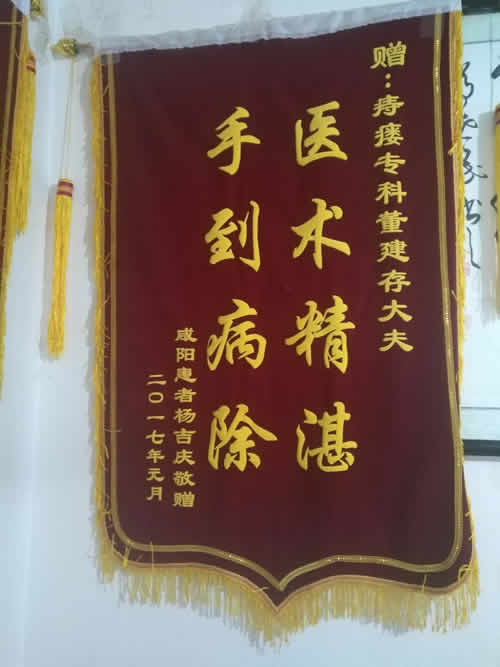 赠：痔瘘专科董建存大夫
医术精湛
手到病除
咸阳患者杨吉庆敬赠
二〇一七年元月